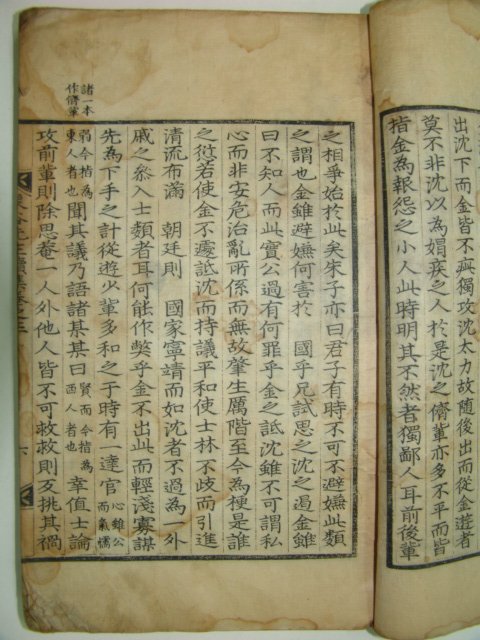 出沈下而金皆不疵獨攻沈太力故随後出而從金遊者
莫不非沈以為媢疾之人於是沈之儕輩亦多不平而皆
指金為報怨之小人此時明其不然者獨鄙人耳前後輩
之相爭始於此矣朱子亦曰君子有時不可不避嫌此類
之謂也金雖避嫌何害於 國乎兄試思之沈之遏金雖
曰不知人而此實公過有何罪乎金之詆沈雖不可謂私
心而非安危治亂所係而無故肇生厲階至今為梗是誰
之愆若使金不遽詆沈而持議平和使士林不歧而引進
清流布滿 朝廷則 國家寧靖而如沈者不過為一外
戚之叅入士類者耳何能作弊乎金不出此而輕淺寡謀
先為下手之計從遊少輩多和之于時有一達官 心雖公而氣懦
弱今指為東人者也 聞其議乃語諸某其曰 賢而今指為西人者也 幸值士論
攻前輩則除思菴一人外他人皆不可救救則反挑其禍
諸一本作儕輩
六